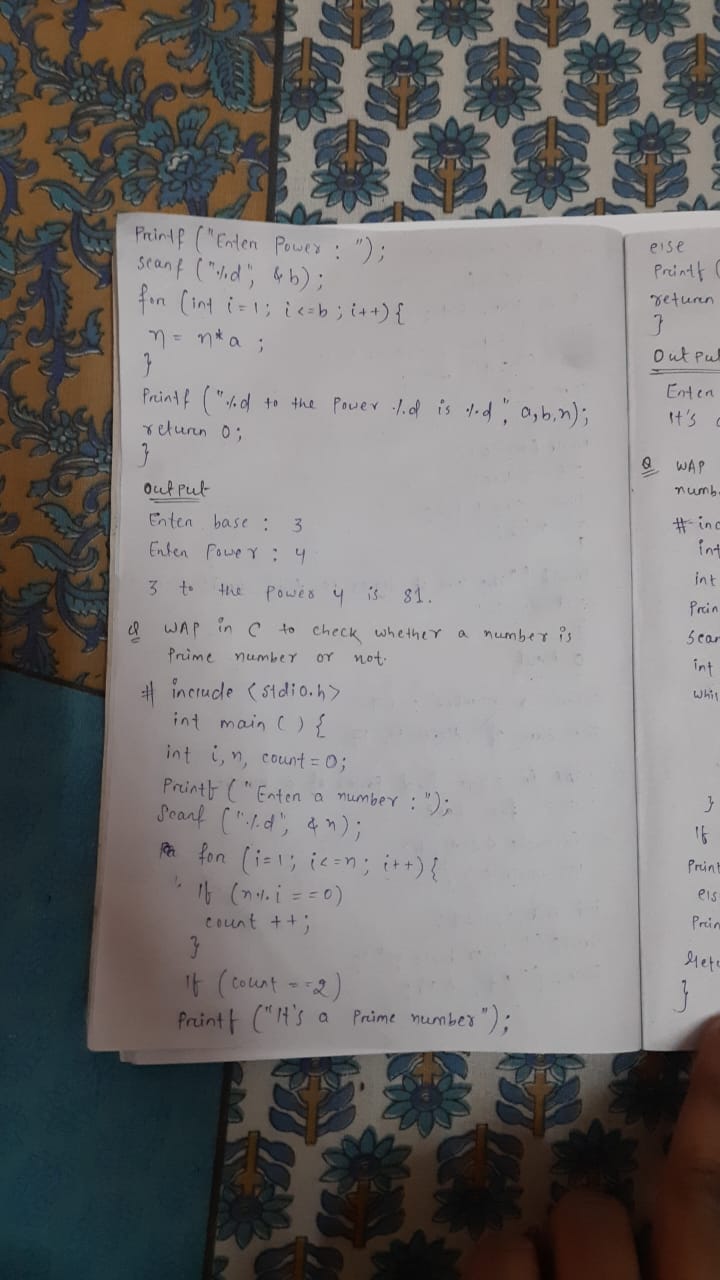 Printf ("Enter Power : ");
scanf ("%d", &b);
for (int i=1; i<=b; i++) {
n = n*a ;
}
Printf ("%d to the Power %d is %d", a,b,n);
return 0;
}
Output
Enter base : 3
Enter Power : 4
3 to the power 4 is 81.
Q WAP in C to check whether a number is
Prime number or not.
# include <stdio.h>
int main () {
int i, n, count = 0;
Printf ("Enter a number : ");
Scanf ("%d", &n);
for (i=1; i<=n; i++) {
If (n%i ==0)
count ++;
}
If (count ==2)
Printf ("It's a Prime number");
else
Printf (
return
}
Output
Enter
It's
Q WAP
numb
# inc
int
int
Prin
Scan
int
whil
}
If
Print
els
Prin
}